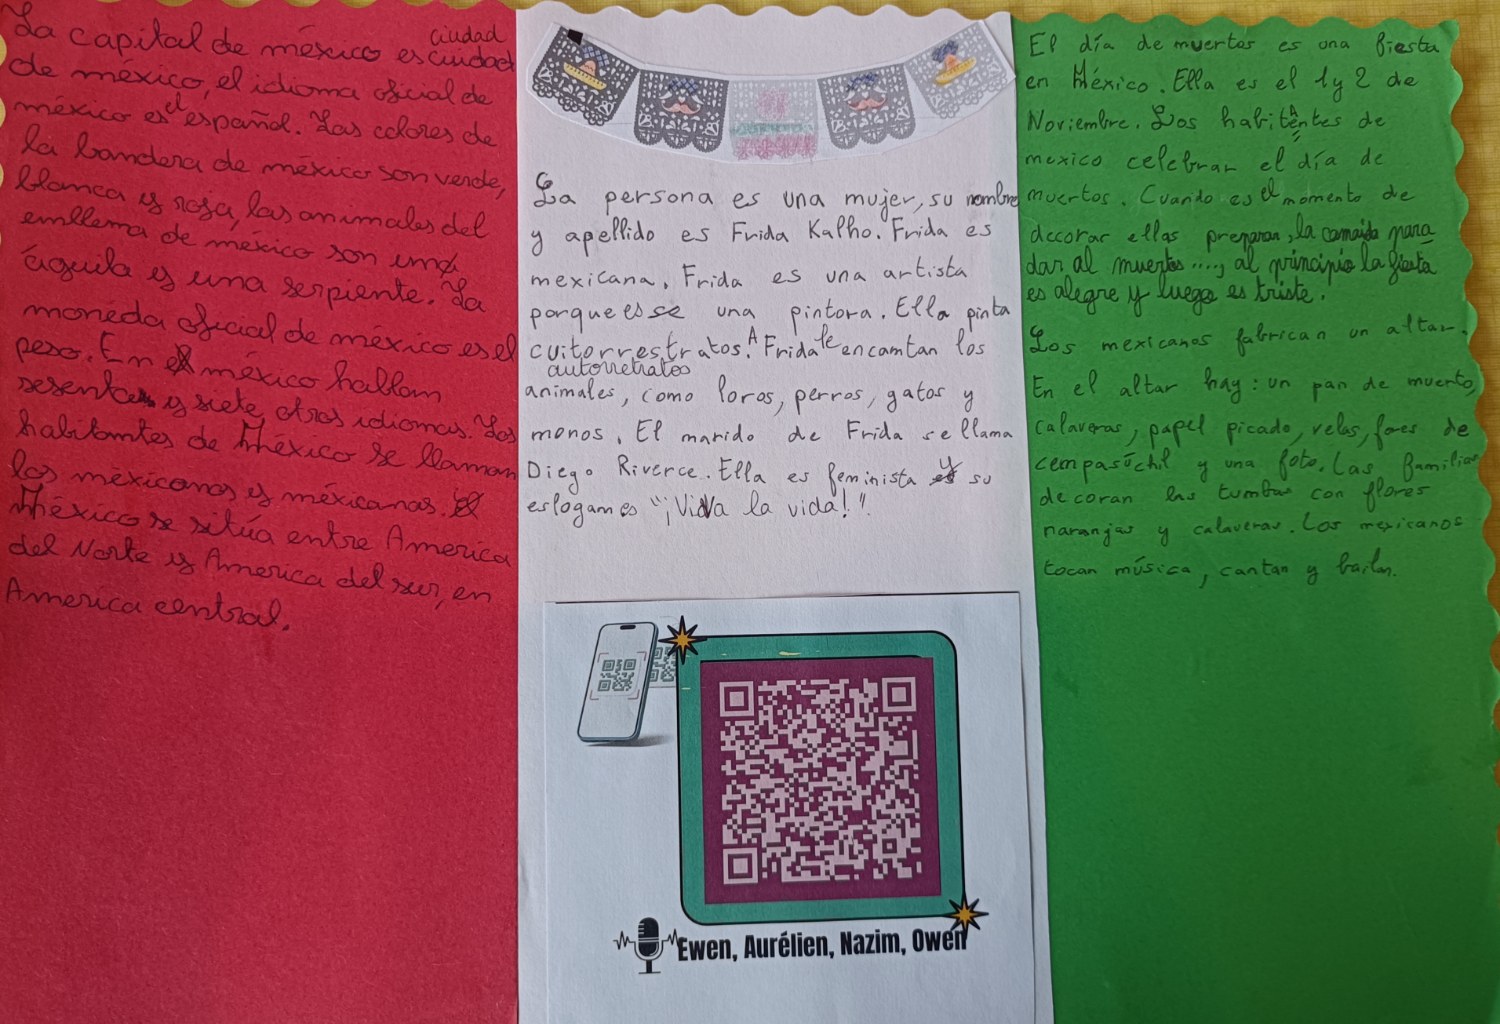 La capital de méxico es ciudad
ciudad
de méxico, el idioma oficial de
méxico es el español. Las colores de
la bandera de méxico son verde,
blanca y roja, las animales del
emllema de méxico son una
águila y una serpiente. La
monéda oficial de méxico es el
peso. En méxico hablam
sesenta y siete otros idiomas. Los
habitamtes de México se llaman
los méxicanos y méxicanas.
México se sitúa entre America
del Norte y America del sur, en
America central.
La persona es una mujer, su nombre
y apellido es Frida Kalho. Frida es
mexicana. Frida es una artista
porque es una pintora. Ella pinta
cuitorrestratos. A Frida le encamtan los
autorretratos
animales, como loros, perros, gatos y
monos. El marido de Frida se llama
Diego Riverce. Ella es feminista y su
eslogam es "¡Viva la vida!".
Ewen, Aurélien, Nazim, Owen
El día de muertos es una fiesta
en México. Ella es el 1 y 2 de
Noviembre. Los habitAntes de
mexico celebrar el día de
muertos. Cuando es el momento de
decorar ellas preparan, la comida para
dar al muertos...., al principio la fiesta
es alegre y luego es triste.
Los mexicanos fabrican un altar.
En el altar hay: un pan de muerto,
calaveras, papel picado, velas, fores de
cempasúchil y una foto. Las familias
decoran las tumbas con flores
naranjas y calaveras. Los mexicanos
tocan música, cantan y bailan.